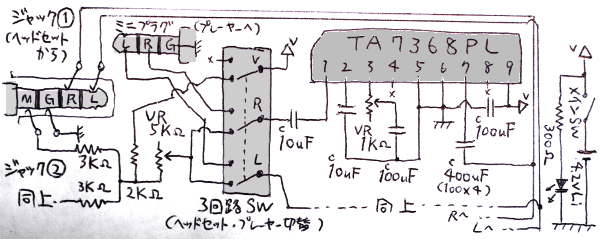 ジャック①
(ヘッドセット
から)
ミニプラグ
(プレーヤーへ)
L R G
M G R L
TA7368PL
1 2 3 4 5 6 7 8 9
x
V
R
L
VR
5KΩ
C
10uF
C
10uF
VR
1KΩ
x
C
100uF
C
400uF
(100x4)
C
100uF
V
V
V
300Ω
メインSW
4.2VLi
ジャック②
3KΩ
3KΩ
2KΩ
同上
3回路SW
(ヘッドセット・プレーヤー切替)
同上
Rへ
Lへ